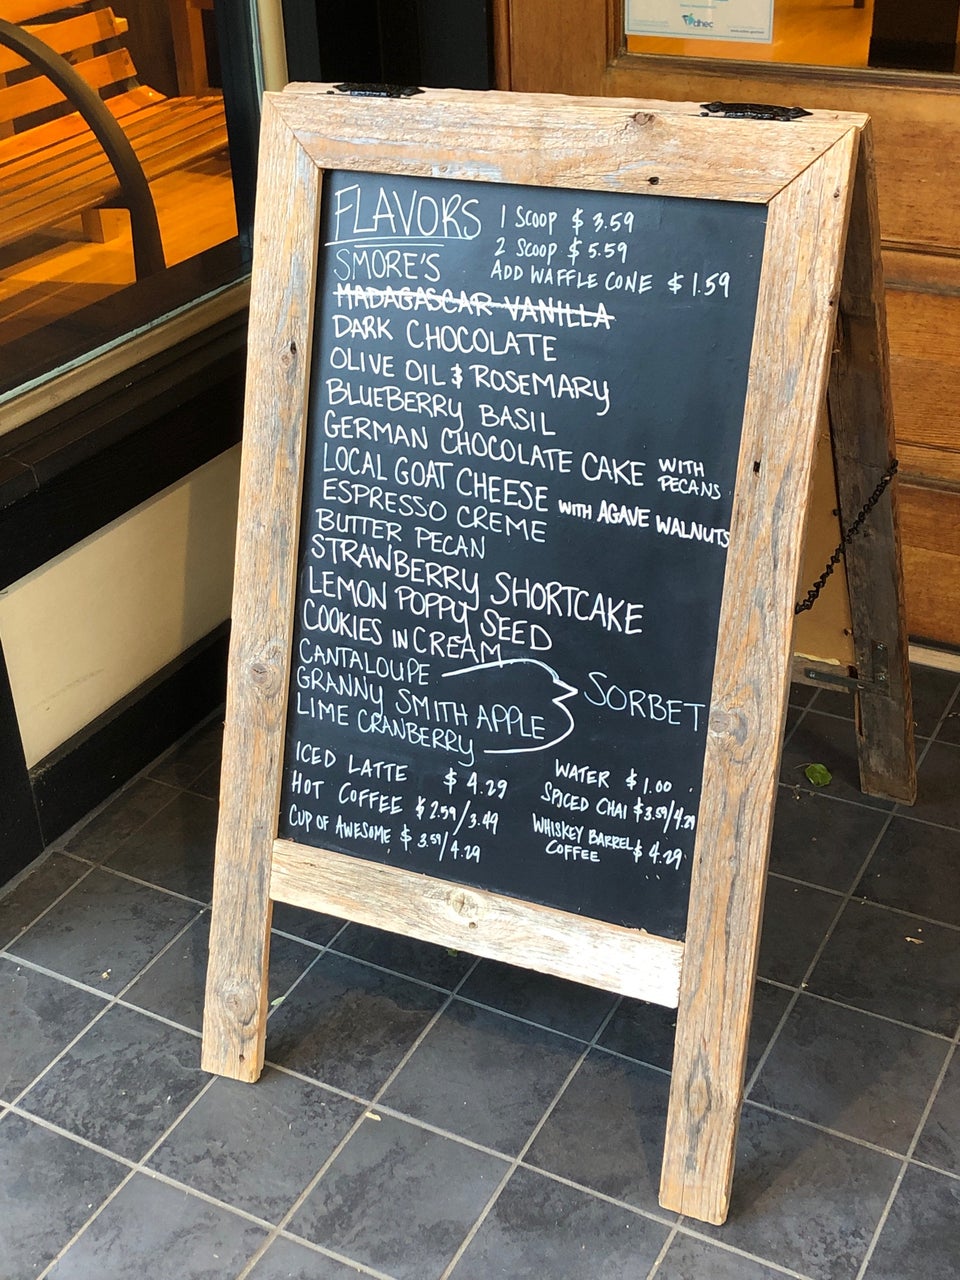 dhec
FLAVORS
1 SCOOP $3.59
2 SCOOP $5.59
ADD WAFFLE CONE $1.59
SMORE'S
MADAGASCAR VANILLA
DARK CHOCOLATE
OLIVE OIL & ROSEMARY
BLUEBERRY BASIL
GERMAN CHOCOLATE CAKE WITH PECANS
LOCAL GOAT CHEESE WITH AGAVE WALNUTS
ESPRESSO CREME
BUTTER PECAN
STRAWBERRY SHORTCAKE
LEMON POPPY SEED
COOKIES IN CREAM
CANTALOUPE
GRANNY SMITH APPLE
LIME CRANBERRY
SORBET
ICED LATTE $4.29
HOT COFFEE $2.59/3.49
CUP OF AWESOME $3.59/4.29
WATER $1.00
SPICED CHAI $3.59/4.29
WHISKEY BARREL COFFEE $4.29